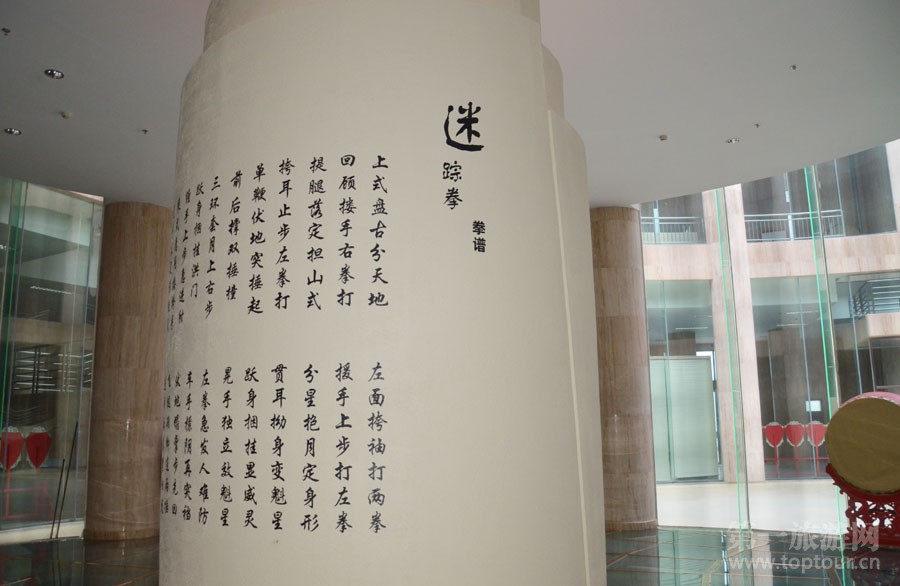 迷
踪拳
拳谱
上式盘古分天地
左面挎袖打两拳
回顾接手右拳打
援手上步打左拳
提腿落定担山式
分星抱月定身形
挎耳止步左拳打
贯耳拗身变魁星
单鞭伏地突捶起
跃身捆挂显威灵
前后撑双捶撞
晃手独立效魁星
三环套月上右步
左拳急发人难防
跃身捆挂洪门
车手撩阴再突裆
第一旅游网
www.toptour.cn